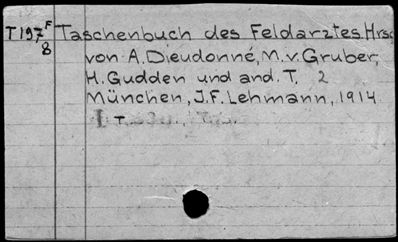 T 197 F Taschenbuch des Feldarztes Hrsg
8
von A. Dieudonné, M. v. Gruber,
H. Gudden und and. T. 2
München, J. F. Lehmann, 1914
T.